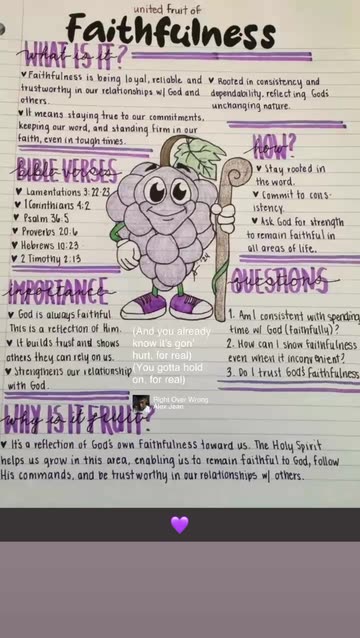 united fruit of
Faithfulness
WHAT IS IT?
what is it?
♥ Faithfulness is being loyal, reliable and
trustworthy in our relationships w/ God and
others.
♥ It means staying true to our commitments,
keeping our word, and standing firm in our
faith, even in tough times.
♥ Rooted in consistency and
dependability, reflecting God's
unchanging nature.
BIBLE VERSES
bible verses
♥ Lamentations 3:22-23
♥ 1 Corinthians 4:2
♥ Psalm 36:5
♥ Proverbs 20:6
♥ Hebrews 10:23
♥ 2 Timothy 2:13
HOW?
how?
♥ Stay rooted in
the word.
♥ Commit to cons-
istency.
♥ Ask God for strength
to remain faithful in
all areas of life.
IMPORTANCE
importance
♥ God is always faithful
This is a reflection of Him.
♥ It builds trust and shows
others they can rely on us.
♥ Strengthens our relationship
with God.
QUESTIONS
questions
1. Am I consistent with spending
time w/ God (faithfully)?
2. How can I show faithfulness
even when it inconvenient?
3. Do I trust God's Faithfulness
(And you already
know it's gon'
hurt, for real)
(You gotta hold
on, for real)
Right Over Wrong
Alex Jean
WHY IS IT FRUIT?
why is it fruit?
♥ It's a reflection of God's own Faithfulness toward us. The Holy Spirit
helps us grow in this area, enabling us to remain faithful to God, follow
His commands, and be trustworthy in our relationships w/ others.